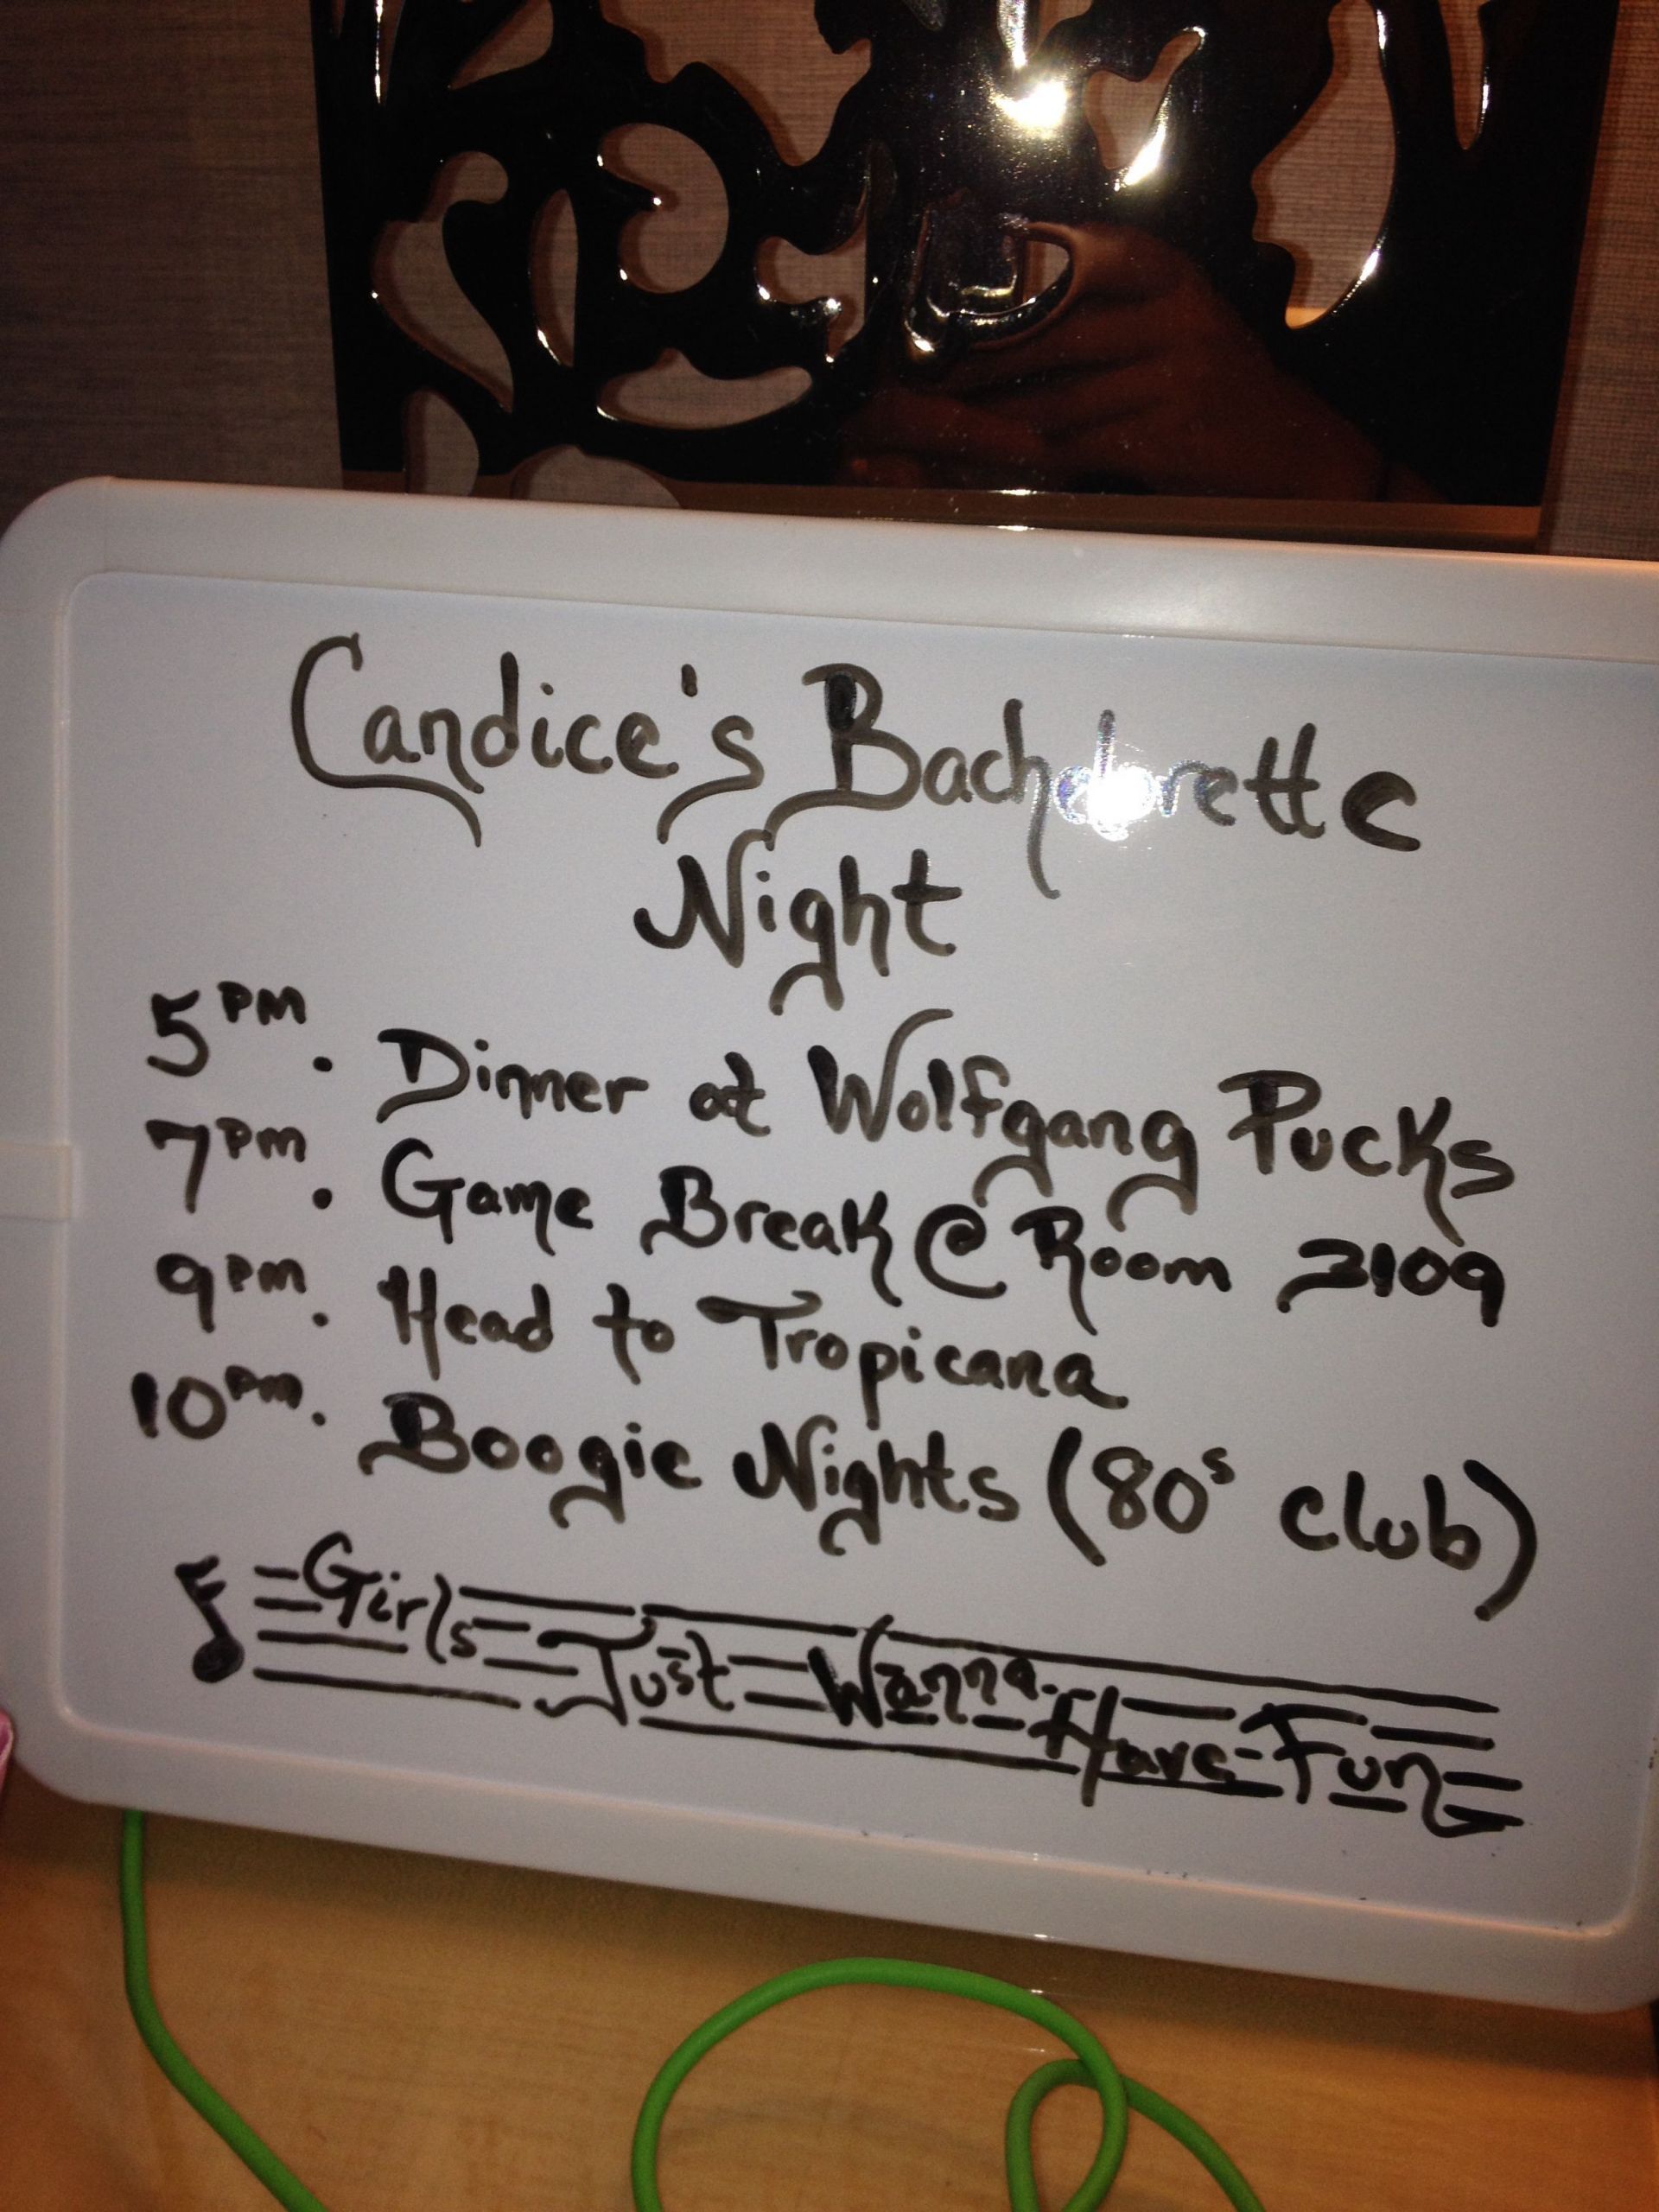 Candice's Bachelorette
Night
5PM. Dinner at Wolfgang Pucks
7PM. Game Break @ Room 2109
9PM. Head to Tropicana
10PM. Boogie Nights (80s club)
Girls Just Wanna Have Fun